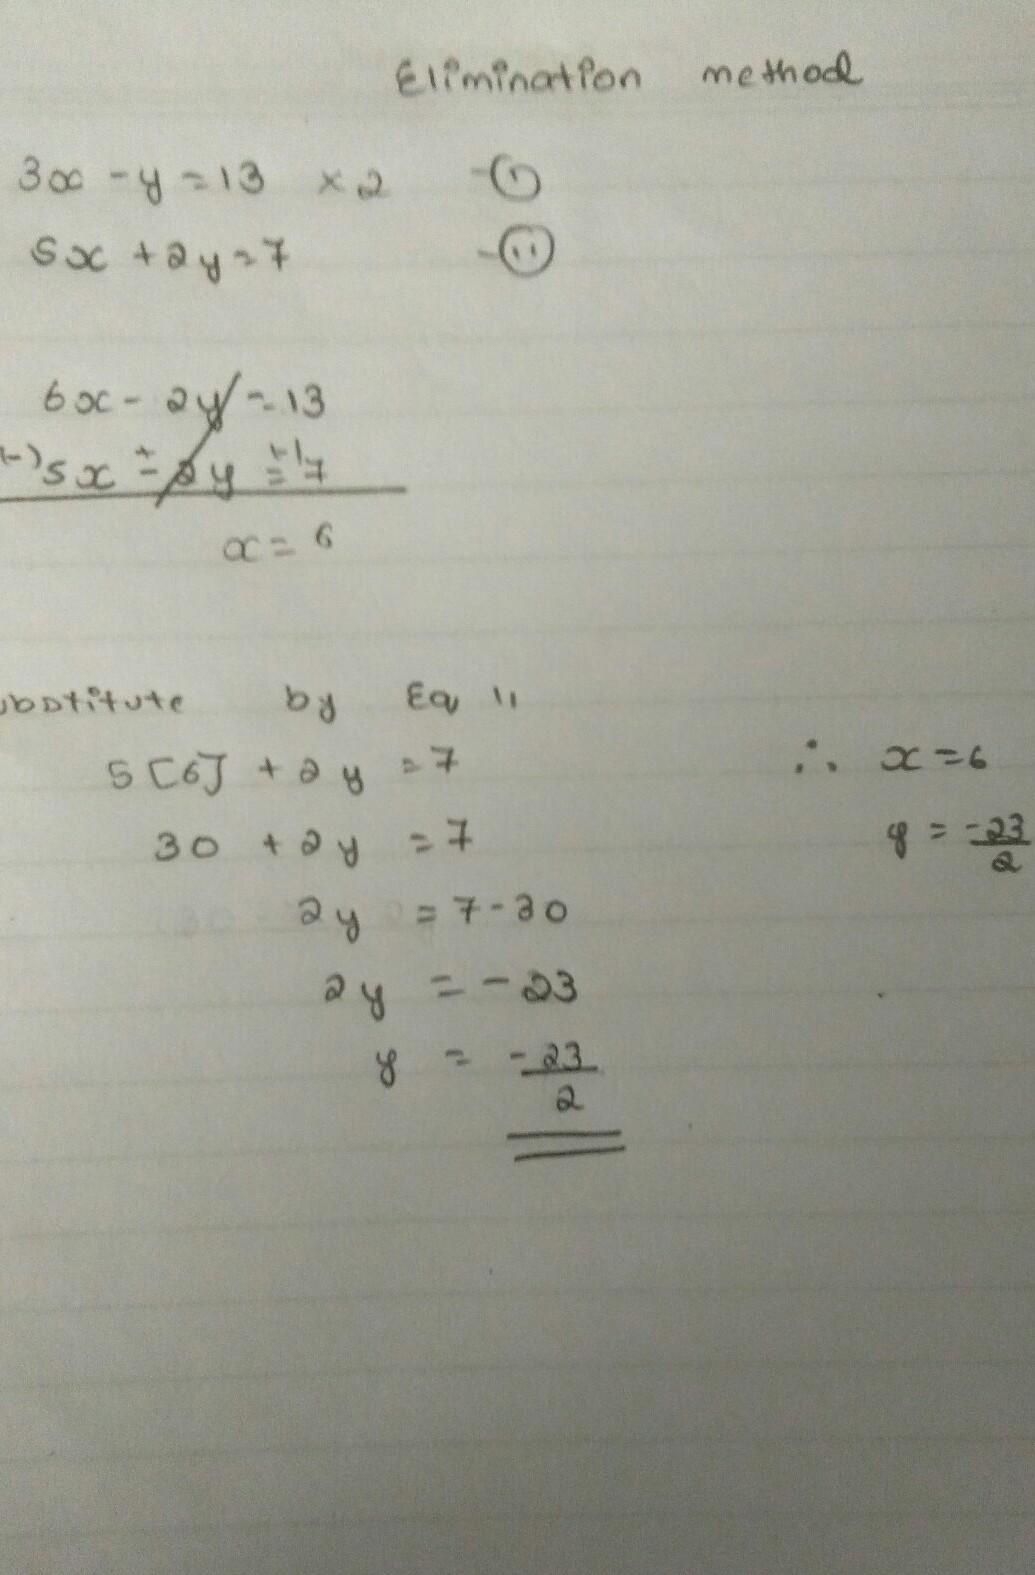 Elimination method
3x - y = 13 × 2 - (i)
5x + 2y = 7 - (ii)
6x - 2y = 13
(-) 5x 2y = 7
x = 6
ubstitute by Eq 11
5 [6] + 2y = 7
∴ x = 6
30 + 2y = 7
y = -23/2
2y = 7 - 30
2y = -23
y = -23/2